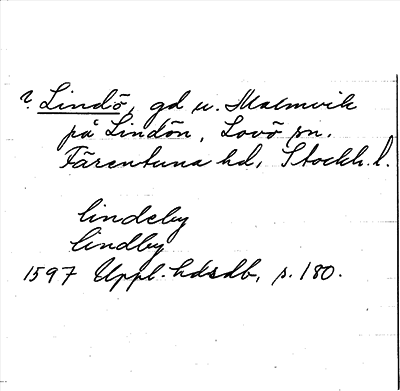 ?. Lindö, gd u. Malmvik
på Lindön, Lovö sn.
Färentuna hd, Stockh. l.
lindeby
lindby
1597 Uppl. hdsdb, s. 180.